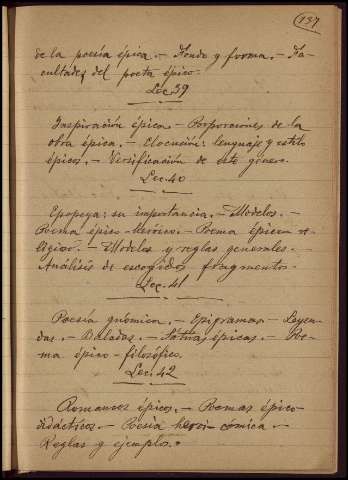 137
de la poesía épica.- Fondo y forma.- Fa-
cultades del poeta épico.-
Lec.39
Inspiración épica.- Proporciones de la
obra épica.- Elocución: lenguaje y estilo
épicos.- Versificación de este género.
Lec.40
Epopeya: su importancia.- Modelos.-
Poema épico-heróico.- Poema épico re-
ligioso.- Modelos y reglas generales.-
Análisis de escogidos fragmentos.
Lec.41
Poesía gnómica.- Epigramas.- Leyen-
das.- Baladas.- Sátiras épicas.- Poe-
ma épico-filosófico.
Lec.42
Romances épicos.- Poemas épico-
didácticos.- Poesía heroi-cómica.-
Reglas y ejemplos.